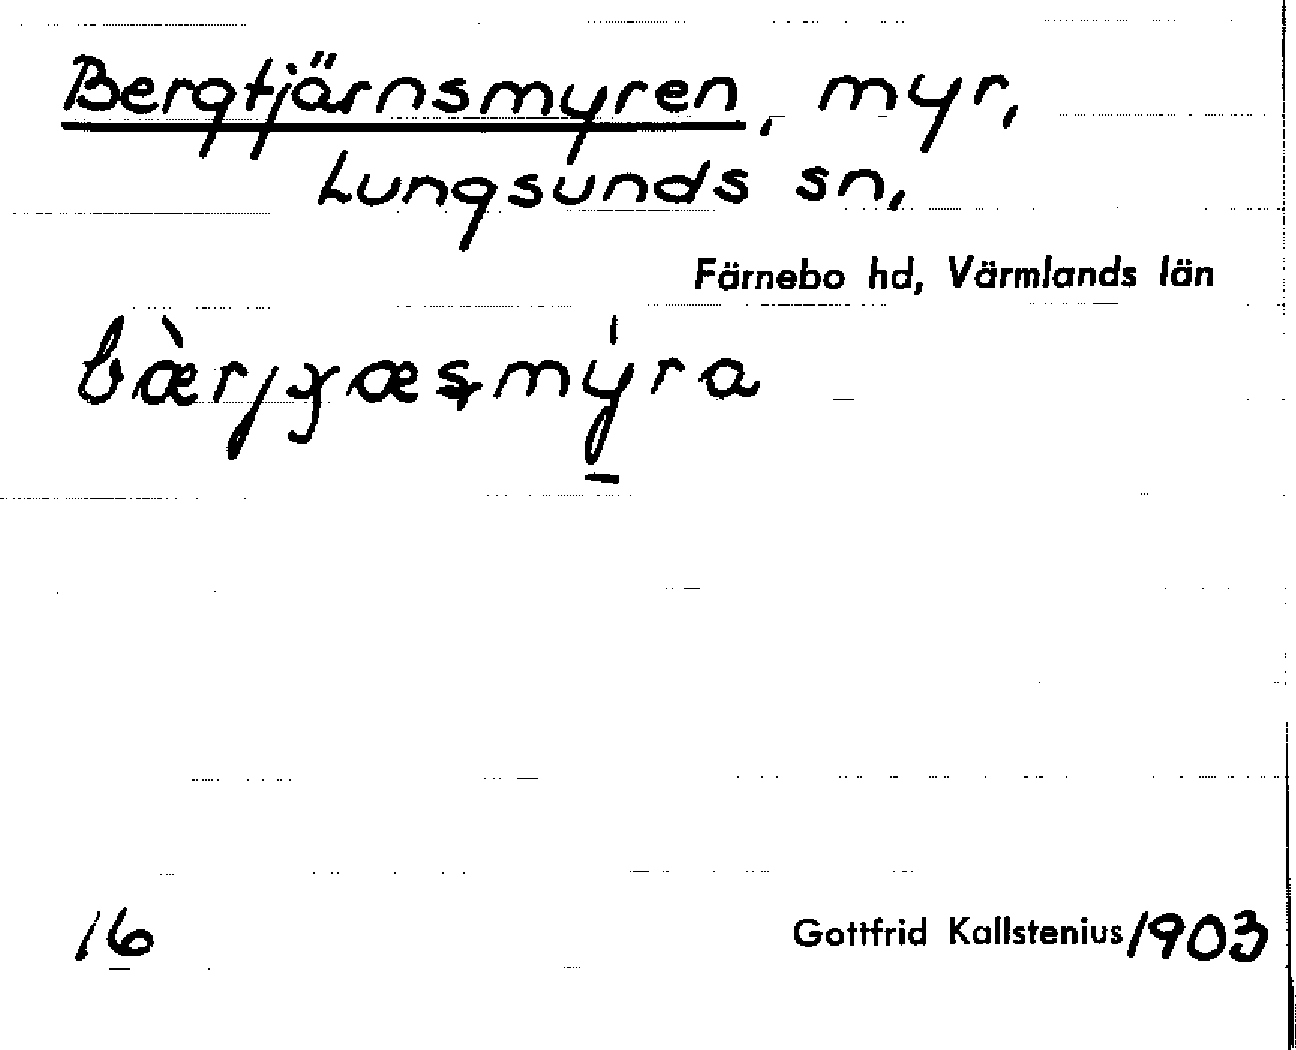 Bergtjärnsmyren, myr,
Lungsunds sn,
Färnebo hd, Värmlands län
16
Gottfrid Kallstenius 1903